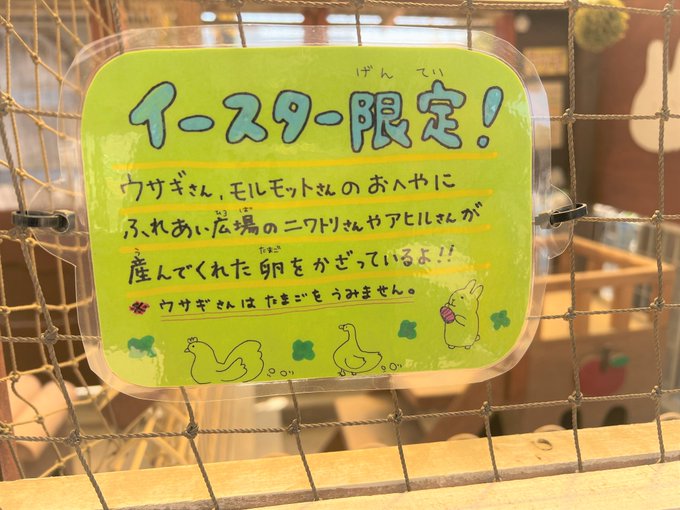 イースター限定!
ウサギさん、モルモットさんのおへやに
ふれあい広場のニワトリさんやアヒルさんが
産んでくれた卵をかざっているよ!!
※ウサギさんはたまごをうみません。